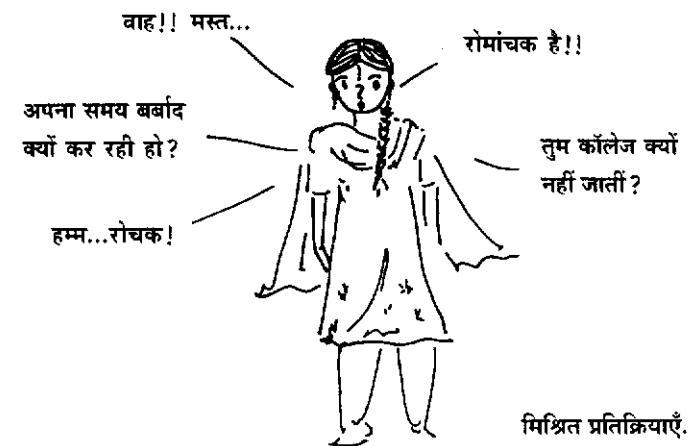 वाह!! मस्त...
रोमांचक है!!
अपना समय बर्बाद
क्यों कर रही हो?
तुम कॉलेज क्यों
नहीं जातीं?
हम्म...रोचक!
मिश्रित प्रतिक्रियाएँ.